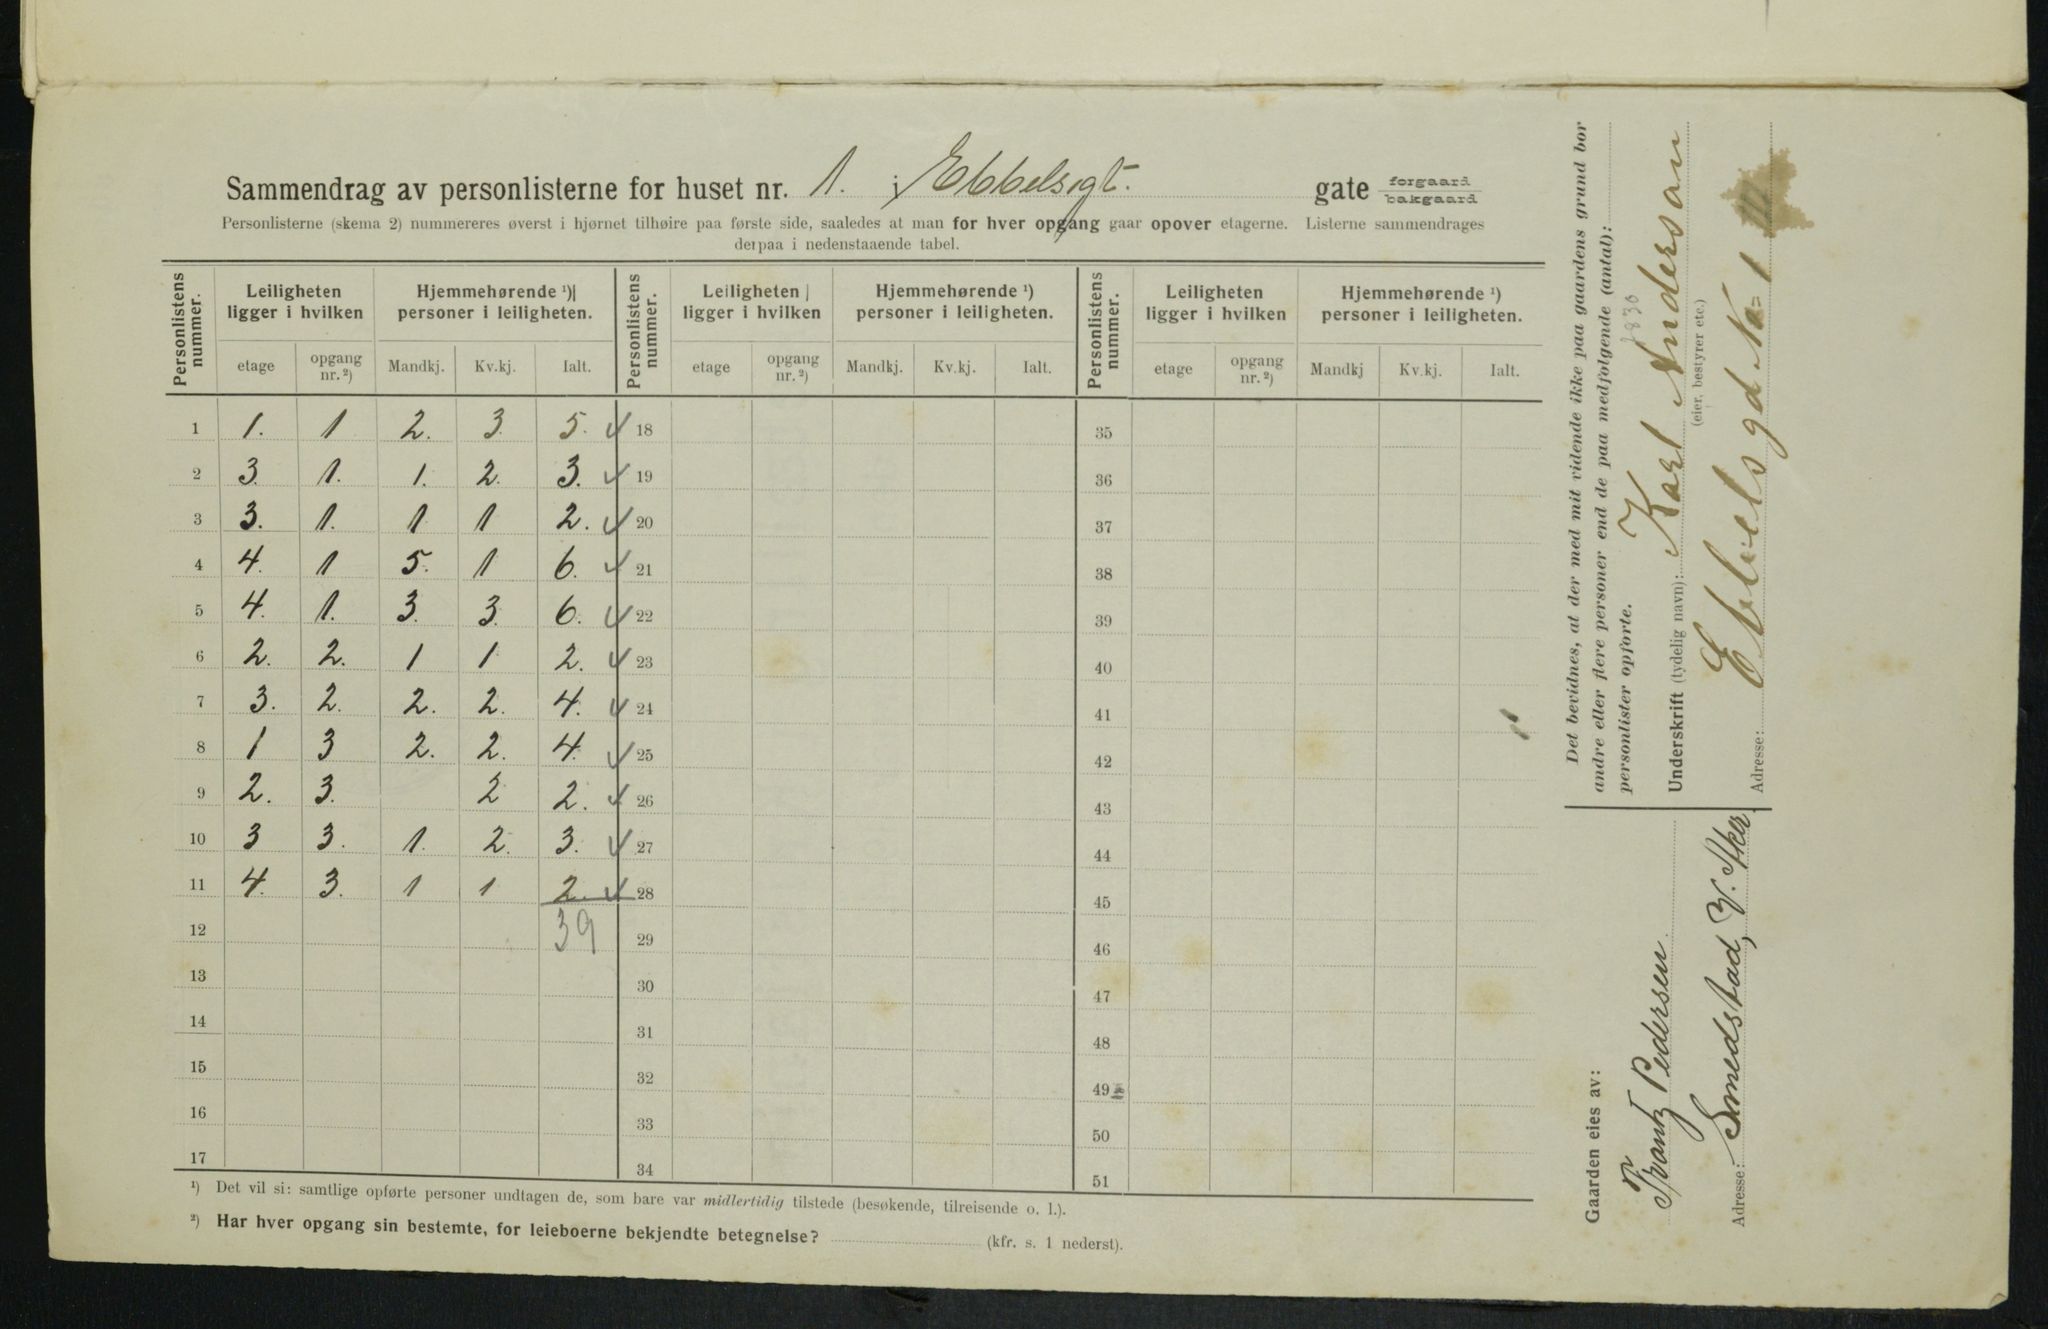 Sammendrag av personlisterne for huset nr. 1. i Ebbelsgt. gate forgaard bakgaard
Personlisterne (skema 2) nummereres øverst i hjørnet tilhøire paa første side, saaledes at man for hver opgang gaar opover etagerne. Listerne sammendrages
derpaa i nedenstaaende tabel.
Personlistens nummer. | Leiligheten ligger i hvilken | Hjemmehørende ¹) personer i leiligheten. | Personlistens nummer. | Leiligheten ligger i hvilken | Hjemmehørende ¹) personer i leiligheten. | Personlistens nummer. | Leiligheten ligger i hvilken | Hjemmehørende ¹) personer i leiligheten.
etage | opgang nr. ²) | Mandkj. | Kv.kj. | Ialt. | etage | opgang nr. ²) | Mandkj. | Kv.kj. | Ialt. | etage | opgang nr. ²) | Mandkj | Kv.kj. | Ialt.
1 1. 1 2. 3 5. 18 35
2 3. 1. 1. 2. 3. 19 36
3 3. 1. 1 1 2. 20 37
4 4. 1 5. 1 6. 21 38
5 4. 1. 3. 3. 6. 22 39
6 2. 2. 1 1 2. 23 40
7 3. 2. 2. 2. 4. 24 41
8 1 3 2. 2. 4. 25 42
9 2. 3. 2 2. 26 43
10 3 3. 1. 2. 3. 27 44
11 4. 3. 1 1 2. 28 45
12 39 29 46
13 30 47
14 31 48
15 32 49
16 33 50
17 34 51
¹) Det vil si: samtlige opførte personer undtagen de, som bare var midlertidig tilstede (besøkende, tilreisende o. l.).
²) Har hver opgang sin bestemte, for leieboerne bekjendte betegnelse? (kfr. s. 1 nederst).
Det bevidnes, at der med mit vidende ikke paa gaardens grund bor
andre eller flere personer end de paa medfølgende (antal):
personlister opførte.
Underskrift (tydelig navn): Karl Anderson
(eier, bestyrer etc.)
Adresse: Ebbelsgd. No 1
Gaarden eies av:
Frantz Pedersen
Adresse: Smedstad, V. Aker